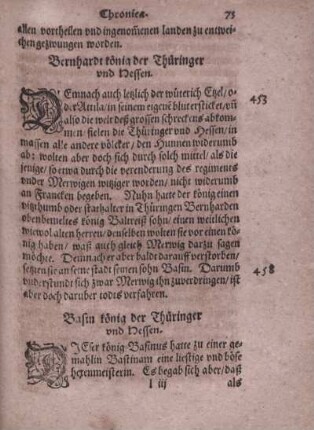 Chronica. 75
allen vortheilen vnd ingenom̃enen landen zu entwei-
chen gezwungen worden.
Bernhardt könig der Thüringer
vnd Hessen.
DEmnach auch letzlich der wüterich Etzel/ o-
der Attila/ in seinem eigenē blut ersticket/ vn̄
also die welt deß grossen schreckens abkom-
men: fielen die Thüringer vnd Hessen/ in
massen alle andere völcker/ den Hunnen widerumb
ab: wolten aber doch sich durch solch mittel/ als die
jenige/ so etwa durch die verenderung des regiments
vnder Merwigen witziger worden/ nicht widerumb
an Francken begeben. Nuhn hatte der könig einen
vitzthumb oder stathalter in Thüringen Bernharden
obenbemeltes könig Baltreiß sohn/ einen weitlichen
wiewol alten herren/ denselben wolten sie vor einen kö-
nig haben/ waß auch gleich Merwig darzu sagen
möchte. Demnach er aber baldt darauff verstorben/
setzten sie an seine stadt seinen sohn Basin. Darumb
vnderstundt sich zwar Merwig ihn zuverdringen/ ist
aber doch daruber todts verfahren.
453
458
Basin könig der Thüringer
vnd Hessen.
DIeser könig Basinus hatte zu einer ge-
mahlin Bastinam eine listige vnd böse
hexenmeisterin. Es begab sich aber/ daß
l iij als